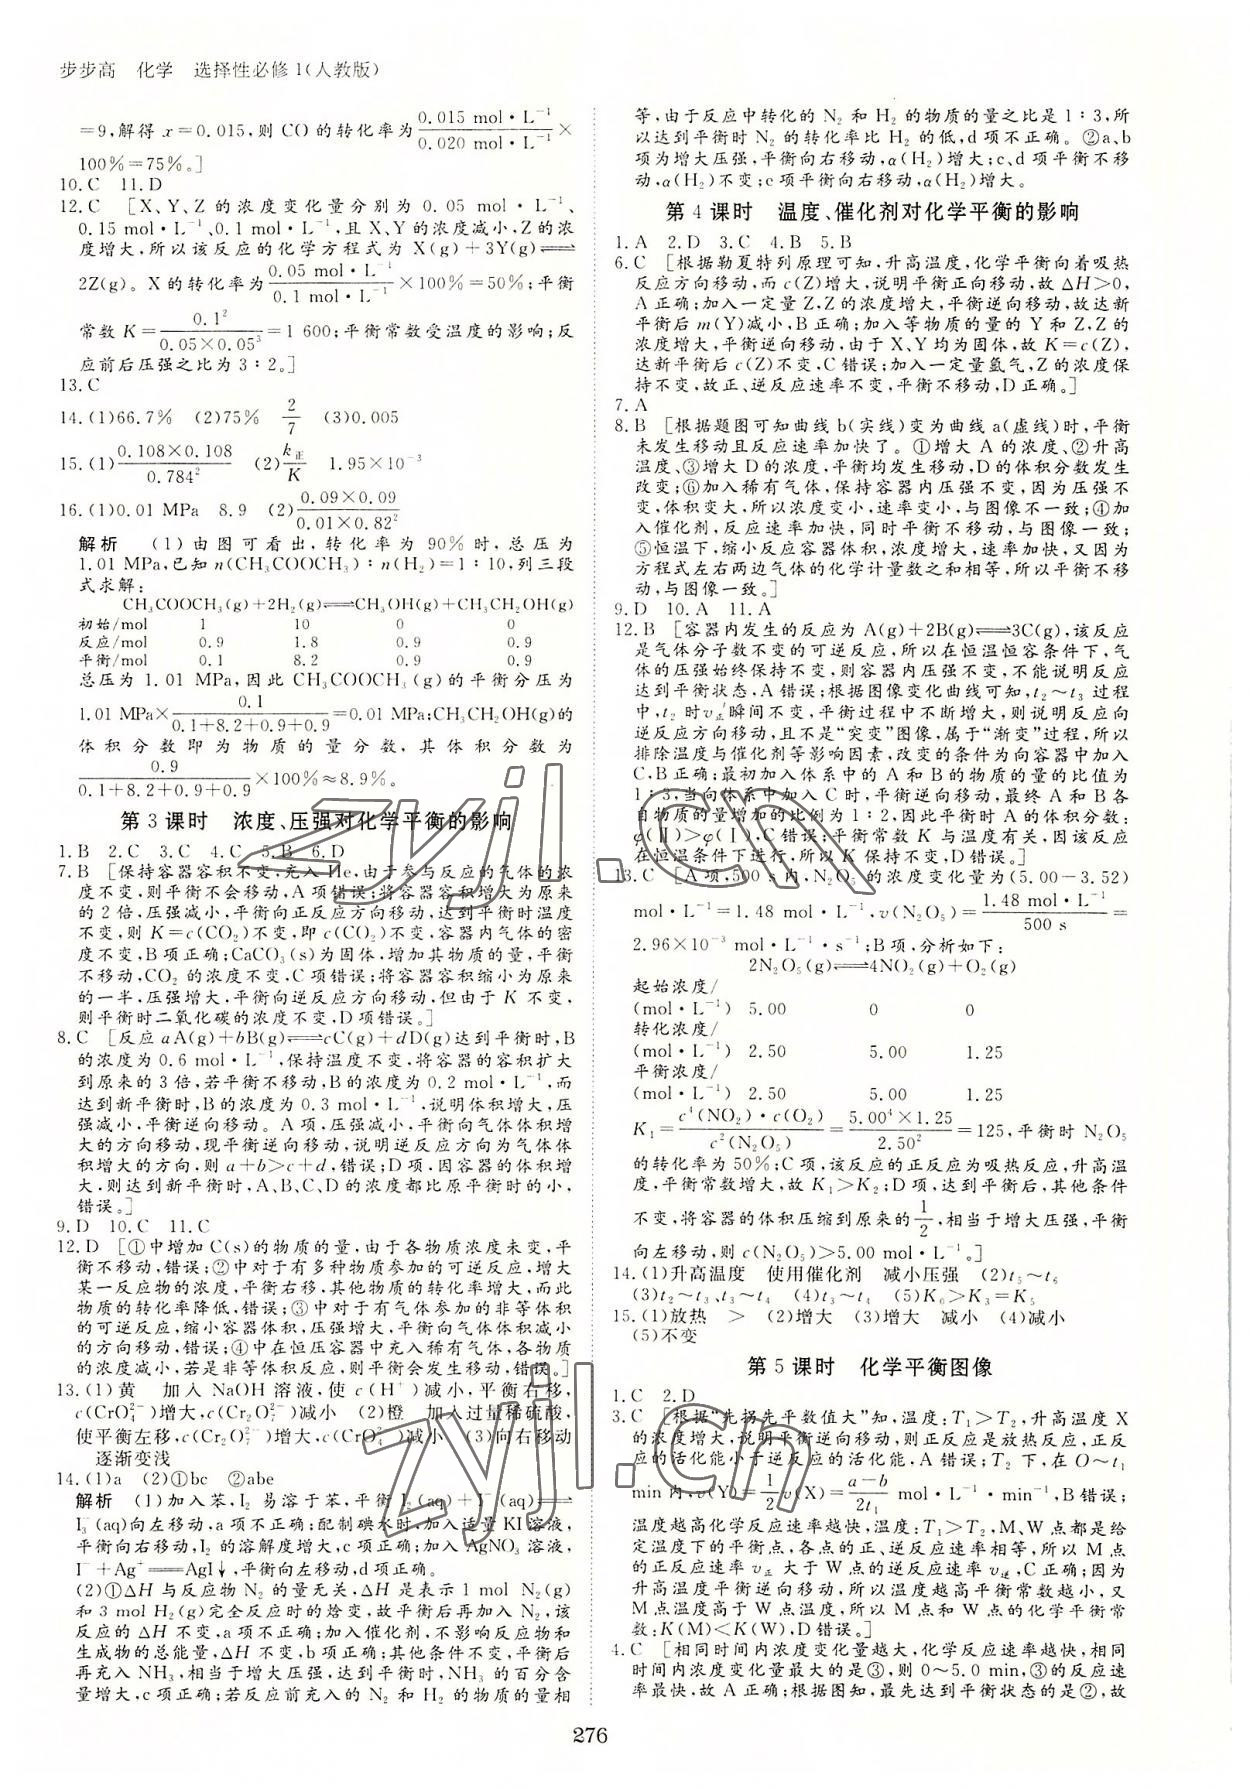 步步高 化学 选择性必修1(人教版)
=9,解得 x=0.015,则 CO 的转化率为 0.015 mol·L⁻¹/0.020 mol·L⁻¹ ×
100%=75%。]
10.C 11.D
12.C [X、Y、Z 的浓度变化量分别为 0.05 mol·L⁻¹、
0.15 mol·L⁻¹、0.1 mol·L⁻¹,且 X、Y 的浓度减小,Z 的浓
度增大,所以该反应的化学方程式为 X(g)+3Y(g)⇌
2Z(g)。X 的转化率为 0.05 mol·L⁻¹/0.1 mol·L⁻¹ ×100%=50%;平衡
常数 K= 0.1²/(0.05×0.05³) =1 600;平衡常数受温度的影响;反
应前后压强之比为 3∶2。]
13.C
14.(1)66.7% (2)75% 2/7 (3)0.005
15.(1) (0.108×0.108)/0.784² (2) k正/K 1.95×10⁻³
16.(1)0.01 MPa 8.9 (2) (0.09×0.09)/(0.01×0.82²)
解析 (1)由图可看出,转化率为 90%时,总压为
1.01 MPa,已知 n(CH₃COOCH₃)∶n(H₂)=1∶10,列三段
式求解:
CH₃COOCH₃(g)+2H₂(g)⇌CH₃OH(g)+CH₃CH₂OH(g)
初始/mol 1 10 0 0
反应/mol 0.9 1.8 0.9 0.9
平衡/mol 0.1 8.2 0.9 0.9
总压为 1.01 MPa,因此 CH₃COOCH₃(g)的平衡分压为
1.01 MPa× 0.1/(0.1+8.2+0.9+0.9) =0.01 MPa;CH₃CH₂OH(g)的
体积分数即为物质的量分数,其体积分数为
0.9/(0.1+8.2+0.9+0.9) ×100%≈8.9%。
第3课时 浓度、压强对化学平衡的影响
1.B 2.C 3.C 4.C 5.B 6.D
7.B [保持容器容积不变,充入 He,由于参与反应的气体的浓
度不变,则平衡不会移动,A 项错误;将容器容积增大为原来
的 2 倍,压强减小,平衡向正反应方向移动,达到平衡时温度
不变,则 K=c(CO₂)不变,即 c(CO₂)不变,容器内气体的密
度不变,B 项正确;CaCO₃(s)为固体,增加其物质的量,平衡
不移动,CO₂ 的浓度不变,C 项错误;将容器容积缩小为原来
的一半,压强增大,平衡向逆反应方向移动,但由于 K 不变,
则平衡时二氧化碳的浓度不变,D 项错误。]
8.C [反应 aA(g)+bB(g)⇌cC(g)+dD(g)达到平衡时,B
的浓度为 0.6 mol·L⁻¹,保持温度不变,将容器的容积扩大
到原来的 3 倍,若平衡不移动,B 的浓度为 0.2 mol·L⁻¹,而
达到新平衡时,B 的浓度为 0.3 mol·L⁻¹,说明体积增大,压
强减小,平衡逆向移动。A 项,减小压强,平衡向气体体积增
大的方向移动,现平衡逆向移动,说明逆反应方向为气体体
积增大的方向,则 a+b>c+d,错误;D 项,因容器的体积增
大,则达到新平衡时,A、B、C、D 的浓度都比原平衡时的小,
错误。]
9.D 10.C 11.C
12.D [①中增加 C(s)的物质的量,由于各物质浓度未变,平
衡不移动,错误;②中对于有多种物质参加的可逆反应,增大
某一反应物的浓度,平衡右移,其他物质的转化率增大,而此
物质的转化率降低,错误;③中对于有气体参加的非等体积
的可逆反应,缩小容器体积,压强增大,平衡向气体体积减小
的方向移动,错误;④中在恒压容器中充入稀有气体,各物质
的浓度减小,若是非等体积反应,则平衡会发生移动,错误。]
13.(1)黄 加入 NaOH 溶液,使 c(H⁺)减小,平衡右移,
c(CrO₄²⁻)增大,c(Cr₂O₇²⁻)减小 (2)橙 加入过量稀硫酸,
使平衡左移,c(Cr₂O₇²⁻)增大,c(CrO₄²⁻)减小 (3)向右移动
逐渐变浅
14.(1)a (2)①bc ②abe
解析 (1)加入苯,I₂ 易溶于苯,平衡 I₂(aq)+I⁻(aq)⇌
I₃⁻(aq)向左移动,a 项不正确;配制碘水时,加入适量 KI 溶液,
平衡向右移动,I₂ 的溶解度增大,c 项正确;加入 AgNO₃ 溶液,
I⁻+Ag⁺═AgI↓,平衡向左移动,d 项正确。
(2)①ΔH 与反应物 N₂ 的量无关,ΔH 是表示 1 mol N₂(g)
和 3 mol H₂(g)完全反应时的焓变,故平衡后再加入 N₂,该
反应的 ΔH 不变,a 项不正确;加入催化剂,不影响反应物和
生成物的总能量,ΔH 不变,b 项正确;其他条件不变,平衡后
再充入 NH₃,相当于增大压强,达到平衡时,NH₃ 的百分含
量增大,c 项正确;若反应前充入的 N₂ 和 H₂ 的物质的量相
等,由于反应中转化的 N₂ 和 H₂ 的物质的量之比是 1∶3,所
以达到平衡时 N₂ 的转化率比 H₂ 的低,d 项不正确。②a、b
项为增大压强,平衡向右移动,α(H₂)增大;c、d 项平衡不移
动,α(H₂)不变;e 项平衡向右移动,α(H₂)增大。
第4课时 温度、催化剂对化学平衡的影响
1.A 2.D 3.C 4.B 5.B
6.C [根据勒夏特列原理可知,升高温度,化学平衡向着吸热
反应方向移动,而 c(Z)增大,说明平衡正向移动,故 ΔH>0,
A 正确;加入一定量 Z,Z 的浓度增大,平衡逆向移动,故达新
平衡后 m(Y)减小,B 正确;加入等物质的量的 Y 和 Z,Z 的
浓度增大,平衡逆向移动,由于 X、Y 均为固体,故 K=c(Z),
达新平衡后 c(Z)不变,C 错误;加入一定量氩气,Z 的浓度保
持不变,故正、逆反应速率不变,平衡不移动,D 正确。]
7.A
8.B [根据题图可知曲线 b(实线)变为曲线 a(虚线)时,平衡
未发生移动且反应速率加快了。①增大 A 的浓度、②升高
温度、③增大 D 的浓度,平衡均发生移动,D 的体积分数发生
改变;⑥加入稀有气体,保持容器内压强不变,因为压强不
变,体积变大,所以浓度变小,速率变小,与图像不一致;④加
入催化剂,反应速率加快,同时平衡不移动,与图像一致;
⑤恒温下,缩小反应容器体积,浓度增大,速率加快,又因为
方程式左右两边气体的化学计量数之和相等,所以平衡不移
动,与图像一致。]
9.D 10.A 11.A
12.B [容器内发生的反应为 A(g)+2B(g)⇌3C(g),该反应
是气体分子数不变的可逆反应,所以在恒温恒容条件下,气
体的压强始终保持不变,则容器内压强不变,不能说明反应
达到平衡状态,A 错误;根据图像变化曲线可知,t₂~t₃ 过程
中,t₂ 时 v′正瞬间不变,平衡过程中不断增大,则说明反应向
逆反应方向移动,且不是“突变”图像,属于“渐变”过程,所以
排除温度与催化剂等影响因素,改变的条件为向容器中加入
C,B 正确;最初加入体系中的 A 和 B 的物质的量的比值为
1∶3,当向体系中加入 C 时,平衡逆向移动,最终 A 和 B 各
自物质的量增加的比例为 1∶2,因此平衡时 A 的体积分数:
φ(Ⅱ)>φ(Ⅰ),C 错误;平衡常数 K 与温度有关,因该反应
在恒温条件下进行,所以 K 保持不变,D 错误。]
13.C [A 项,500 s 内,N₂O₅ 的浓度变化量为(5.00-3.52)
mol·L⁻¹=1.48 mol·L⁻¹,v(N₂O₅)= 1.48 mol·L⁻¹/500 s =
2.96×10⁻³ mol·L⁻¹·s⁻¹;B 项,分析如下:
2N₂O₅(g)⇌4NO₂(g)+O₂(g)
起始浓度/
(mol·L⁻¹) 5.00 0 0
转化浓度/
(mol·L⁻¹) 2.50 5.00 1.25
平衡浓度/
(mol·L⁻¹) 2.50 5.00 1.25
K₁= c⁴(NO₂)·c(O₂)/c²(N₂O₅) = 5.00⁴×1.25/2.50² =125,平衡时 N₂O₅
的转化率为 50%;C 项,该反应的正反应为吸热反应,升高温
度,平衡常数增大,故 K₁>K₂;D 项,达到平衡后,其他条件
不变,将容器的体积压缩到原来的 1/2,相当于增大压强,平衡
向左移动,则 c(N₂O₅)>5.00 mol·L⁻¹。]
14.(1)升高温度 使用催化剂 减小压强 (2)t₅~t₆
(3)t₂~t₃、t₃~t₄ (4)t₃~t₄ (5)K₀>K₃=K₅
15.(1)放热 > (2)增大 (3)增大 减小 (4)减小
(5)不变
第5课时 化学平衡图像
1.C 2.D
3.C [根据“先拐先平数值大”知,温度:T₁>T₂,升高温度 X
的浓度增大,说明平衡逆向移动,则正反应是放热反应,正反
应的活化能小于逆反应的活化能,A 错误;T₂ 下,在 0~t₁
min 内,v(Y)= 1/2 v(X)= (a-b)/2t₁ mol·L⁻¹·min⁻¹,B 错误;
温度越高化学反应速率越快,温度:T₁>T₂,M、W 点都是给
定温度下的平衡点,各点的正、逆反应速率相等,所以 M 点
的正反应速率 v正 大于 W 点的逆反应速率 v逆,C 正确;因为
升高温度平衡逆向移动,所以温度越高平衡常数越小,又
M 点温度高于 W 点温度,所以 M 点和 W 点的化学平衡常
数:K(M)<K(W),D 错误。]
4.C [相同时间内浓度变化量越大,化学反应速率越快,相同
时间内浓度变化量最大的是③,则 0~5.0 min,③的反应速
率最快,故 A 正确;根据图知,最先达到平衡状态的是②,故
276
zyjl.cn
zyjl.cn